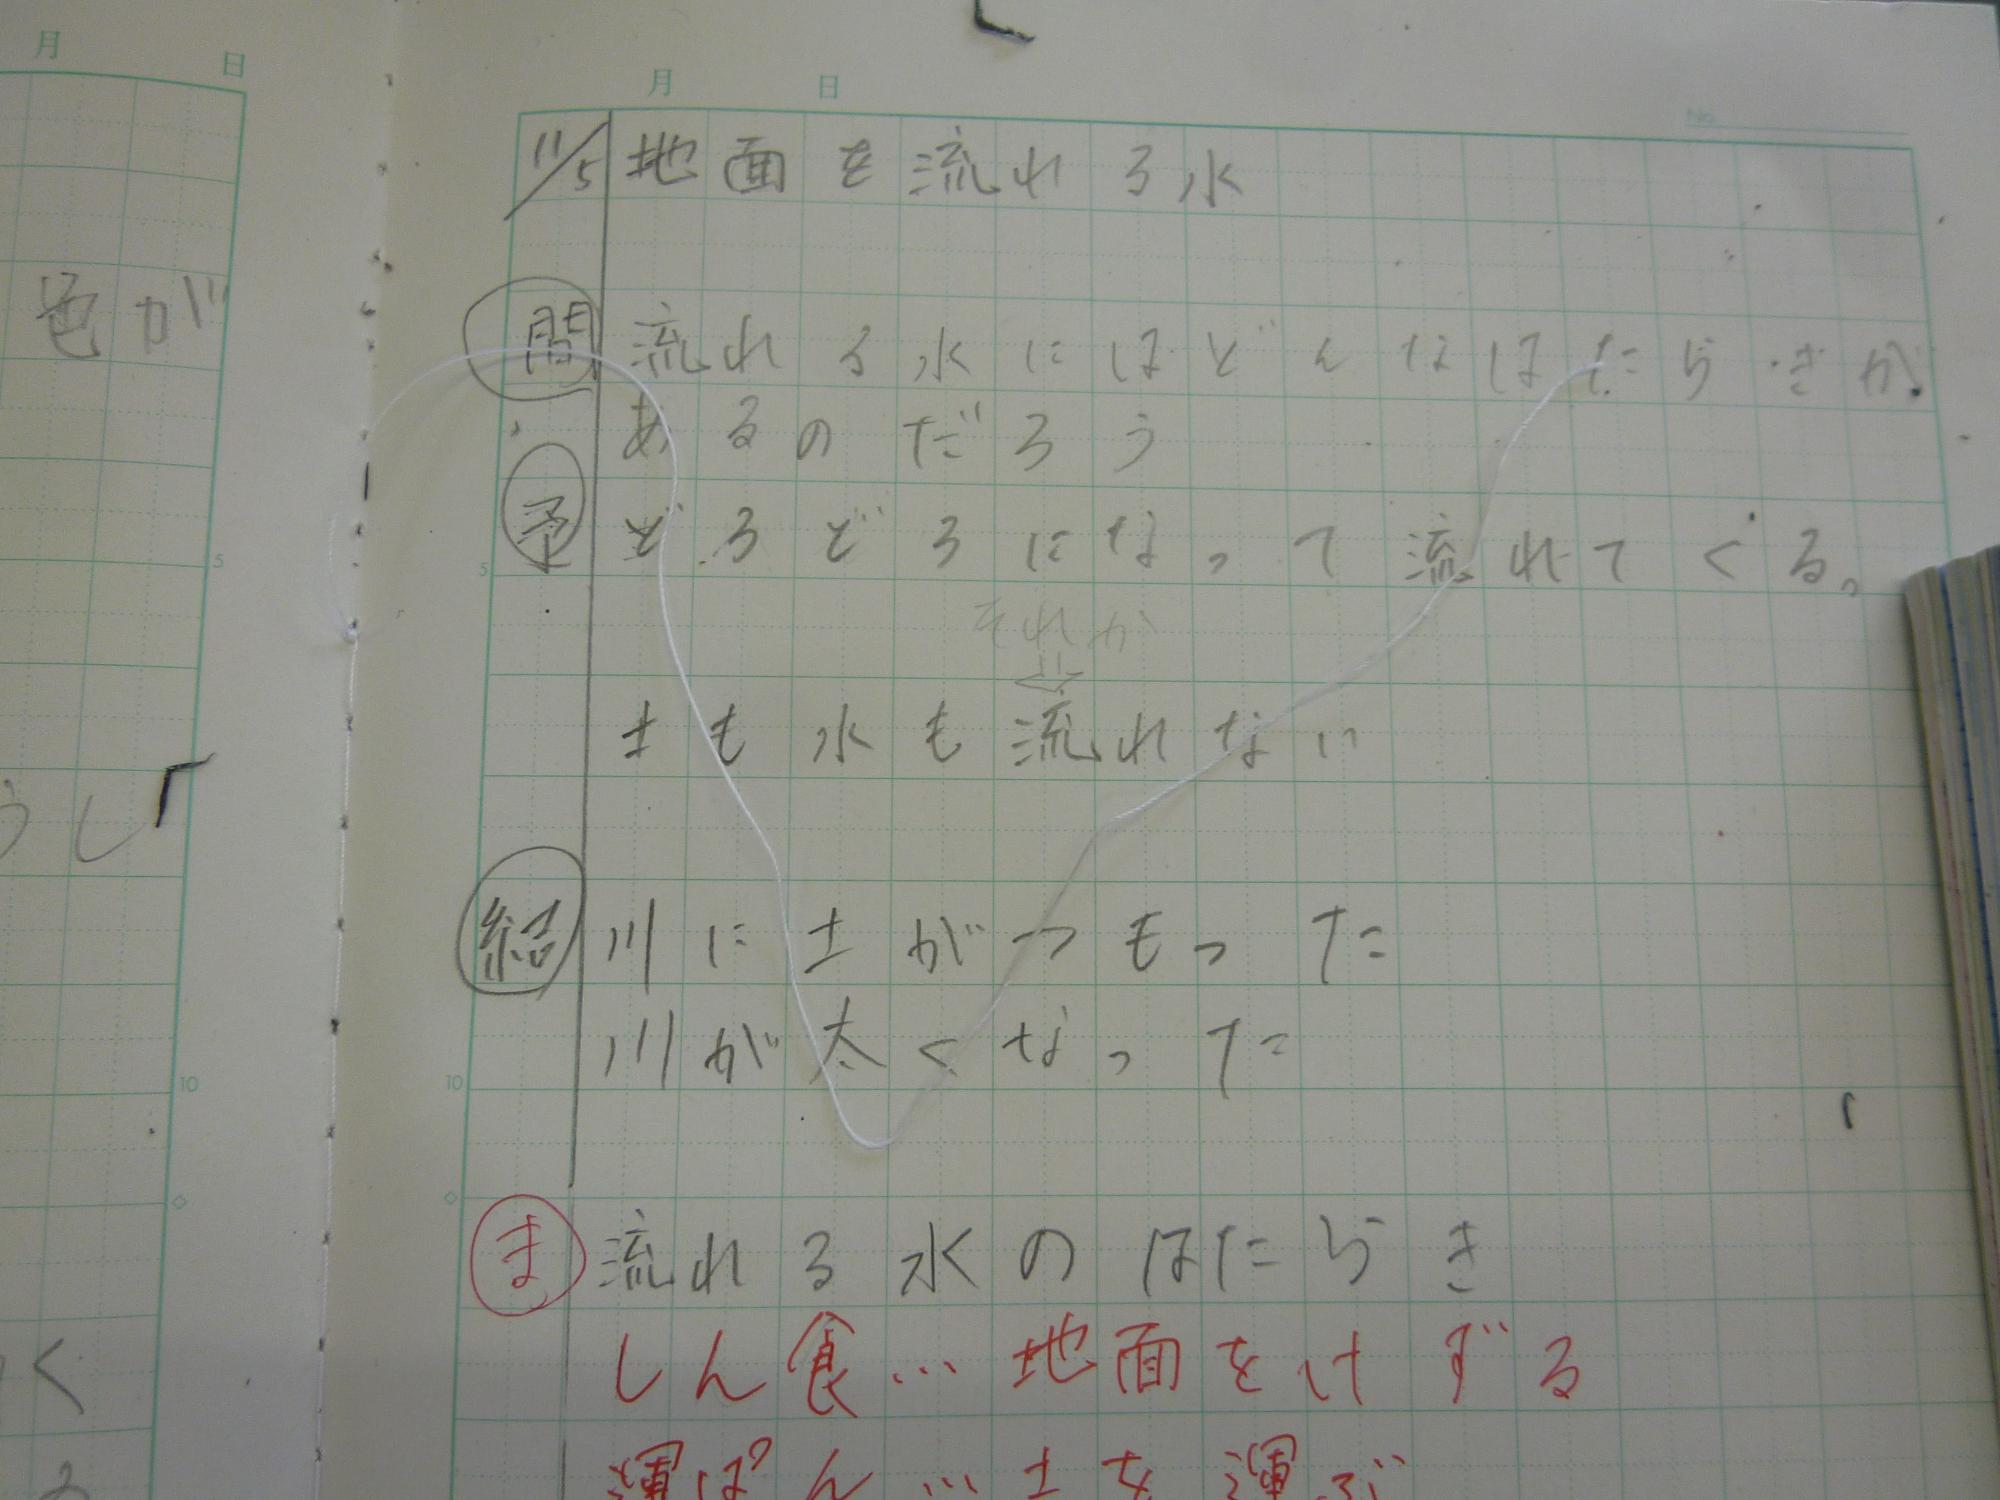 月 日
色が
うし
く
月 日
No.
11/5 地面を流れる水
問 流れる水にはどんなはたらきが
あるのだろう
予 どろどろになって流れてくる。
それか
土も水も流れない
結 川に土がつもった
川が太くなった
ま 流れる水のはたらき
しん食…地面をけずる
運ぱん…土を運ぶ
5
10
5
10